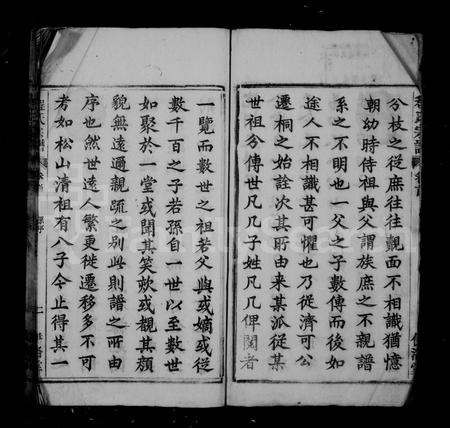 分枝之從庶往往覿面不相識猶憶
朝幼時侍祖與父謂族庶之不親譜
系之不明也一父之子數傳而後如
途人不相識甚可懼也乃從濟可公
遷桐之始詮次其所由來某派從某
世祖分傳世凡几子姓凡几俾閱者
一覽而數世之祖若父與或嫡或從
數千百之子若孫自一世以至數世
如聚於一堂或聞其笑欬或覩其顏
貌無遠邇親疏之别此則譜之所由
序也然世遠人繁更徙遷移多不可
考如松山清祖有八子今止得其一